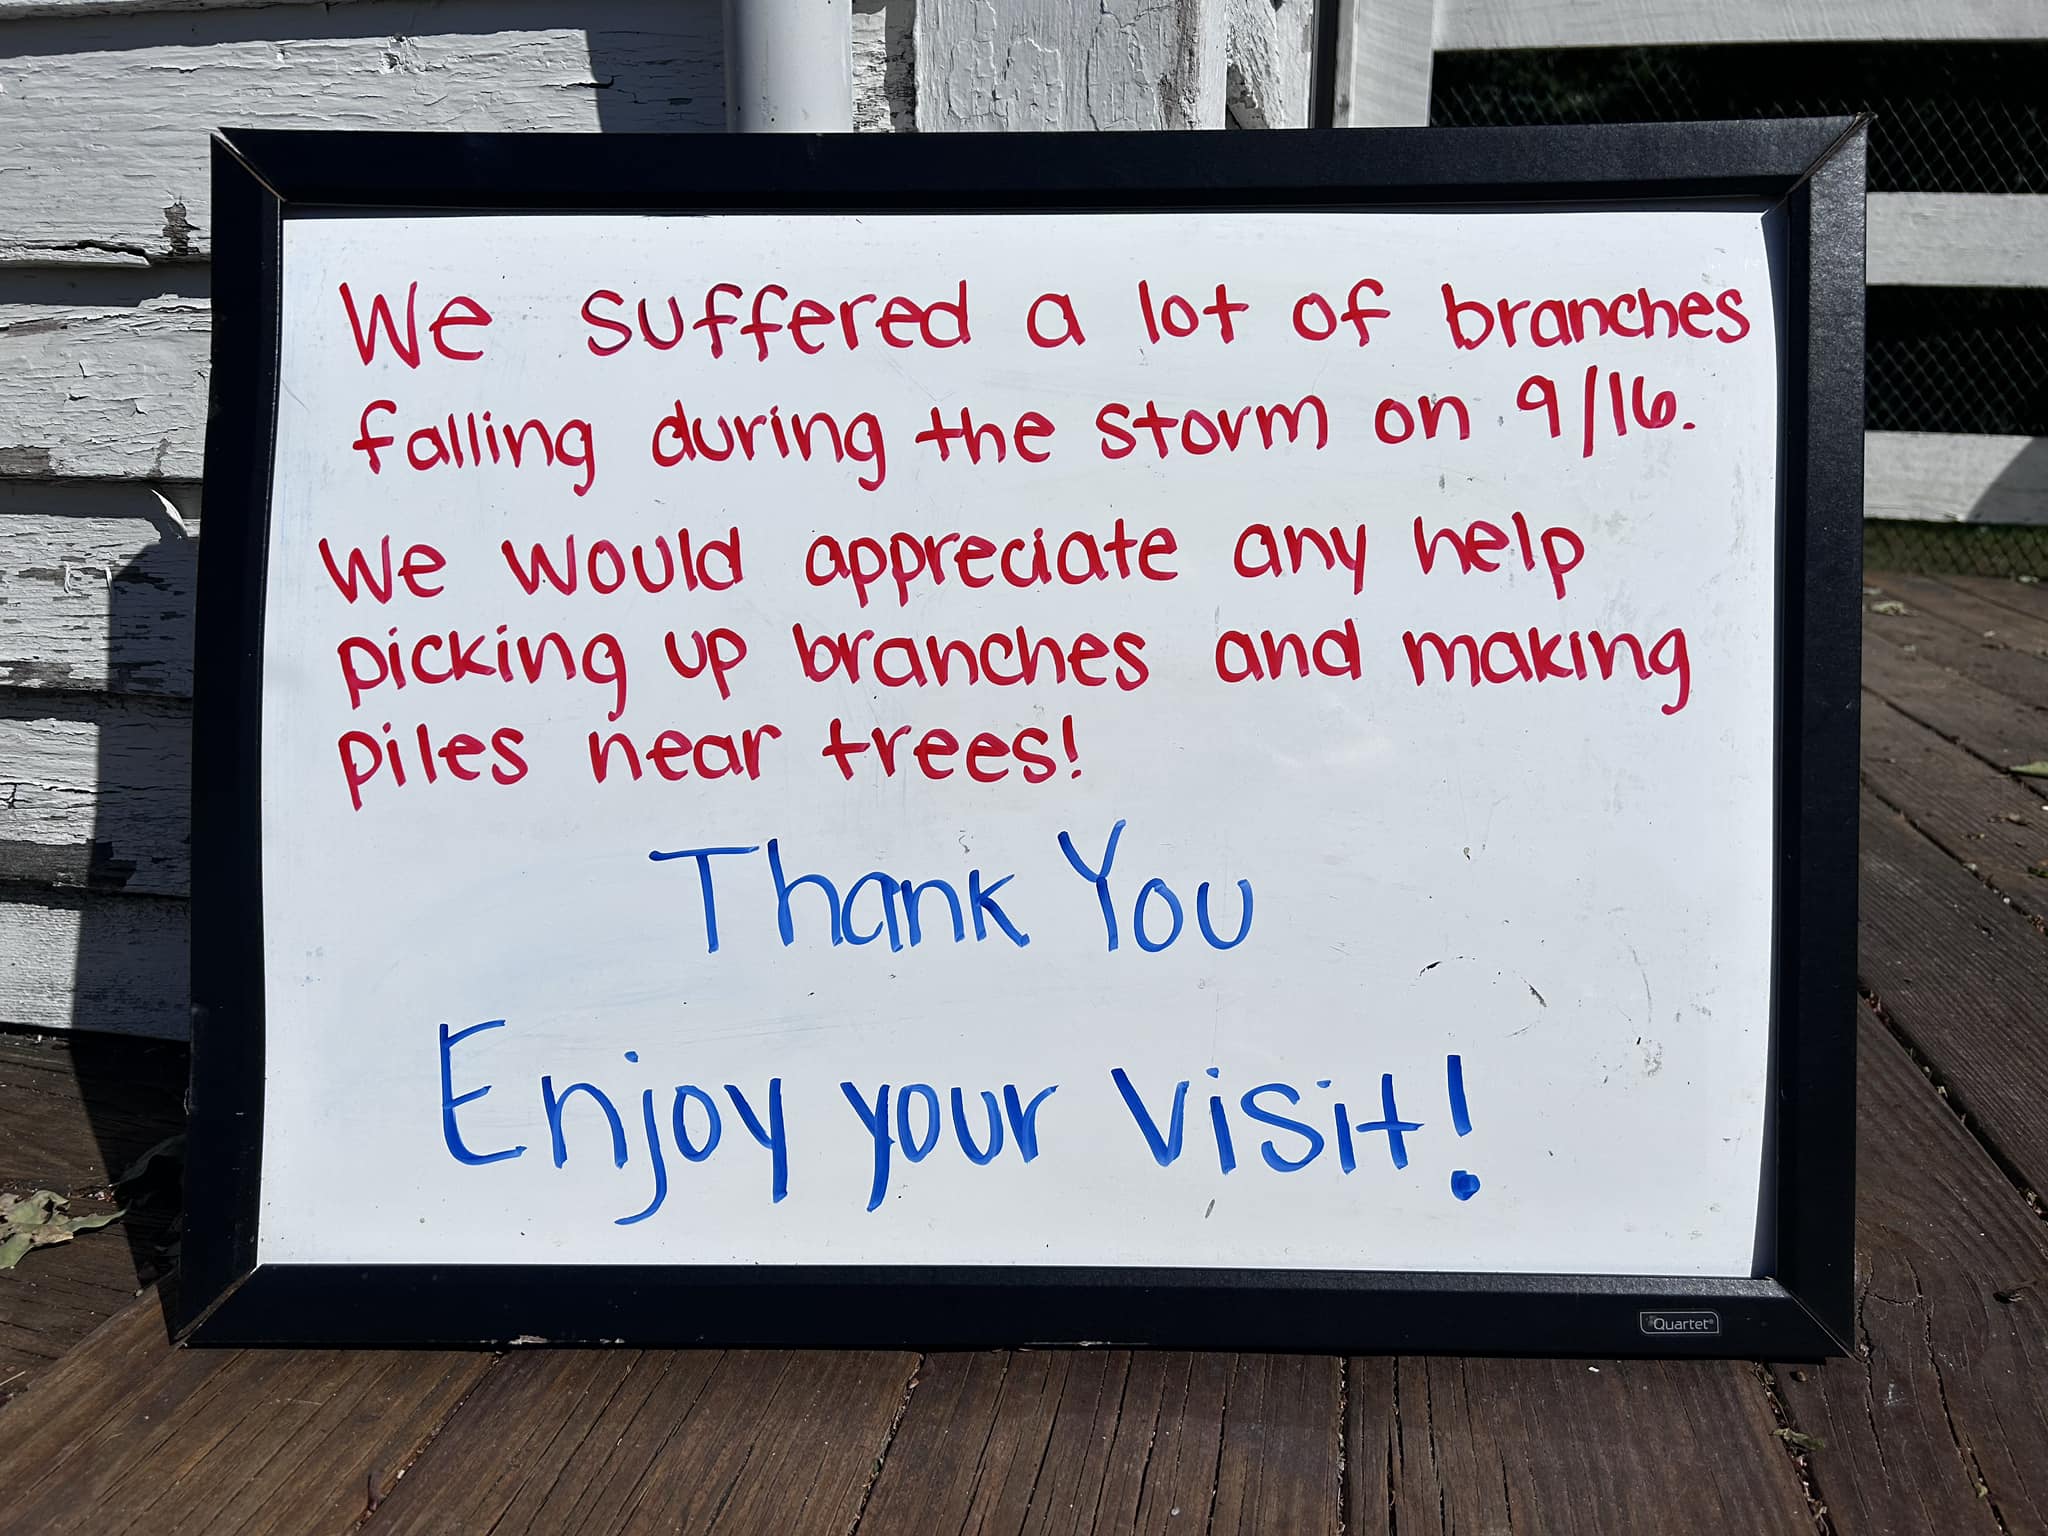 We suffered a lot of branches
falling during the storm on 9/16.
We would appreciate any help
picking up branches and making
piles near trees!
Thank You
Enjoy your visit!
Quartet®